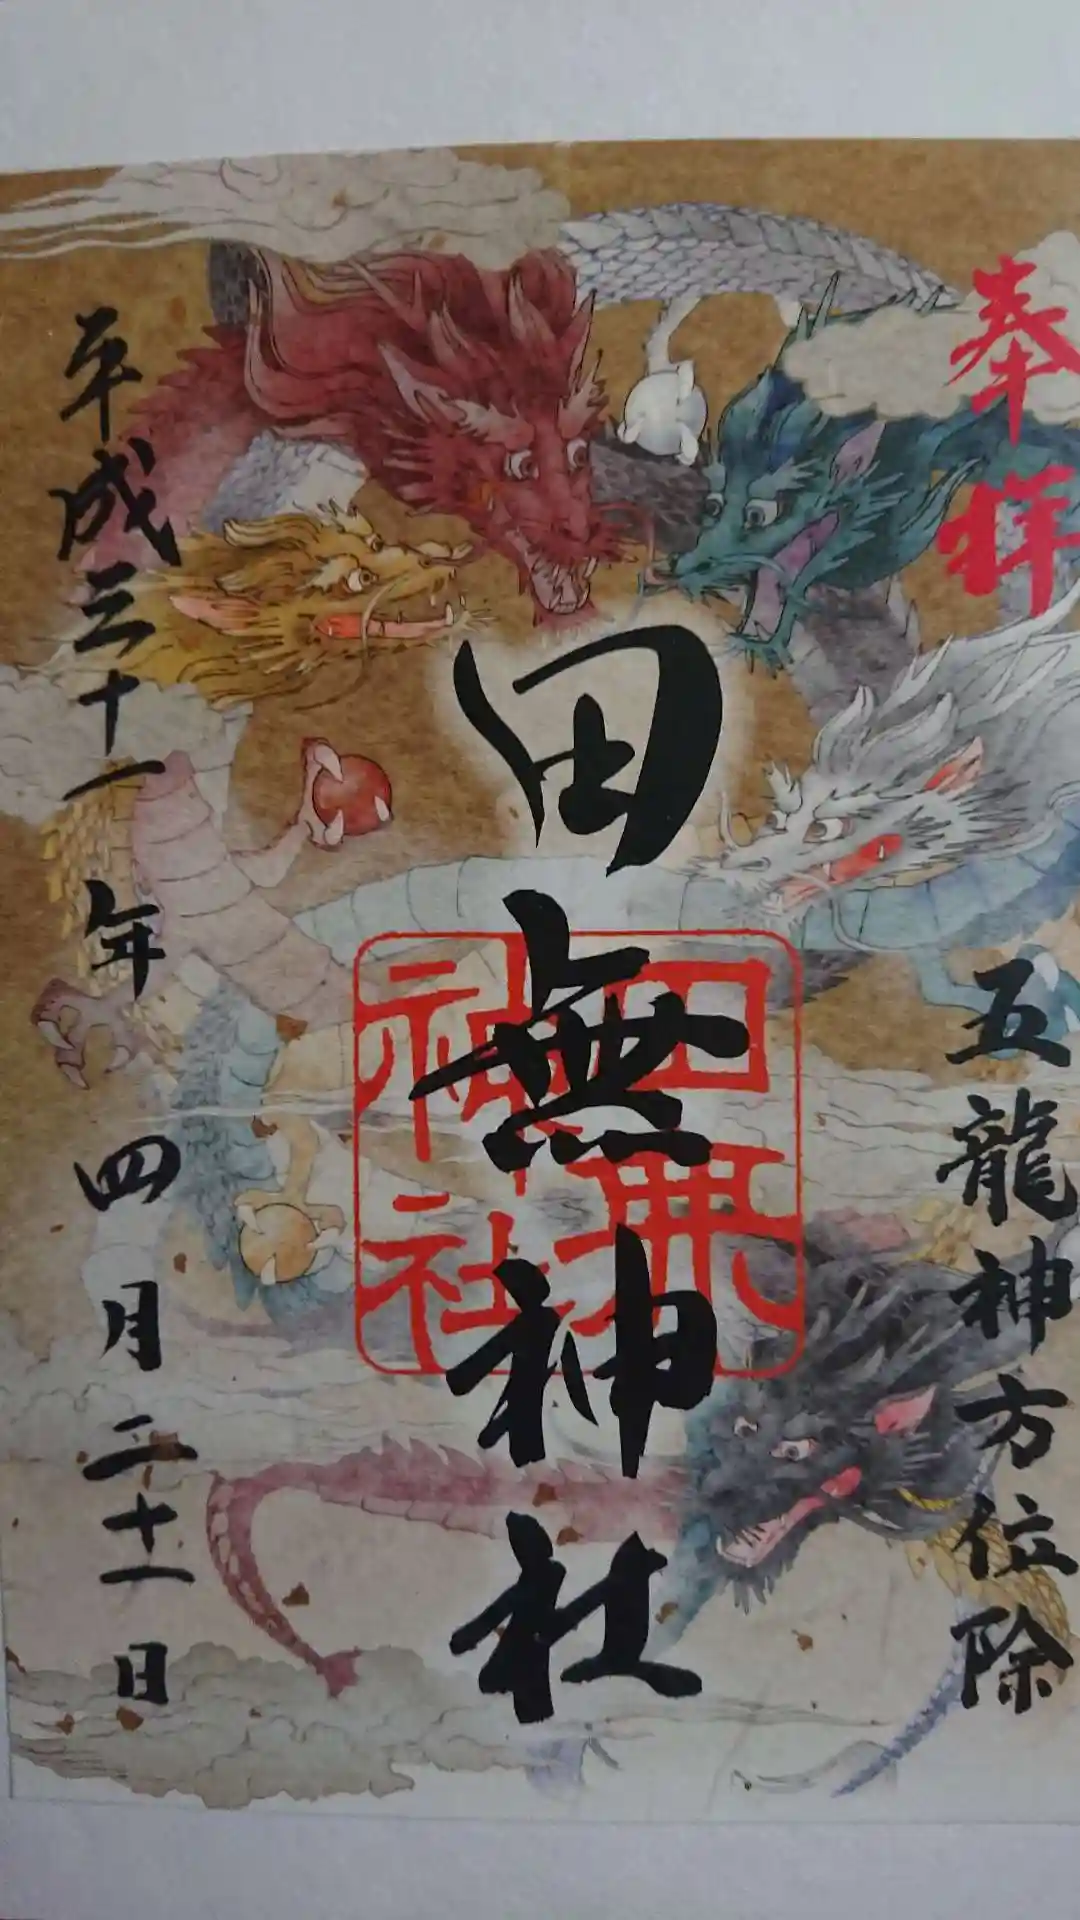 奉拝
五龍神方位除
田無神社
田無神社
平成三十一年四月二十一日